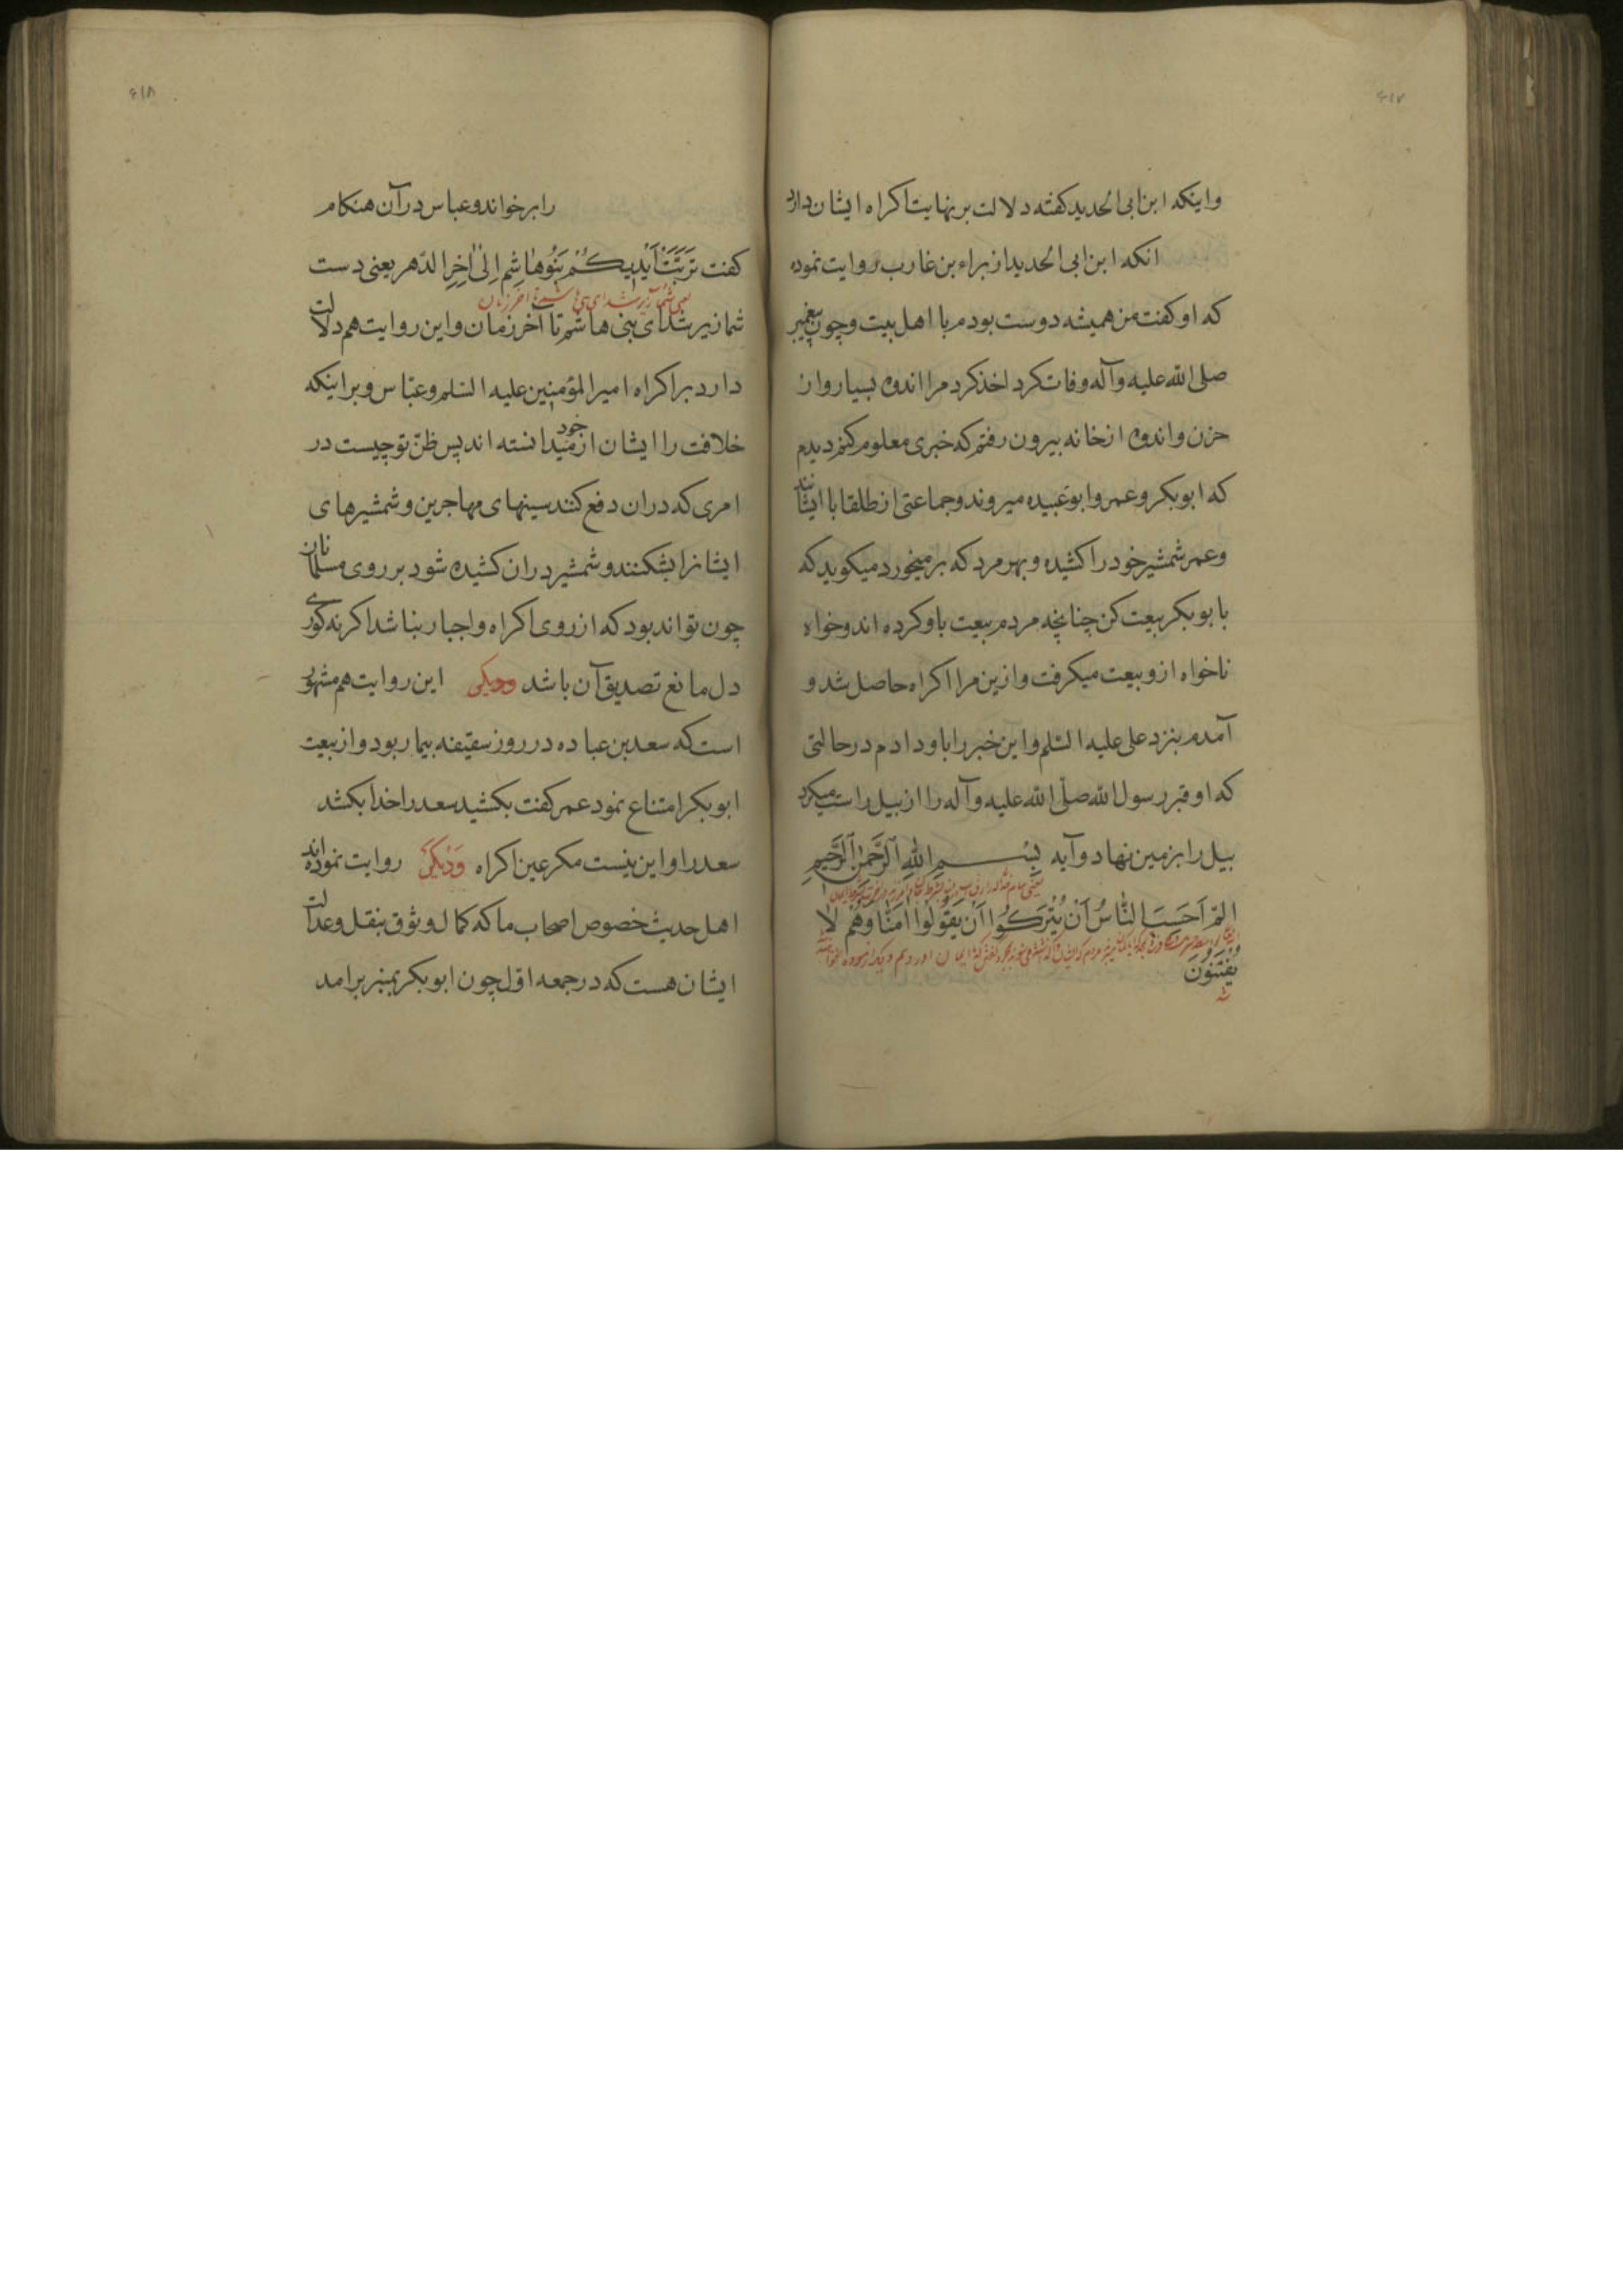 ۶۱۷
واینکه ابن ابی الحدید کفته دلالت بر نهایت اکراه ایشان دارد
انکه ابن ابی الحدید از براء بن غارب روایت نموده
که او کفت من همیشه دوست بودم با اهل بیت و چون پیغمبر
صلی الله علیه وآله وفات کرد اخذ کرد مرا اندوه بسیار واز
حزن و اندوه از خانه بیرون رفتم که خبری معلوم کنم دیدم
که ابوبکر وعمر وابوعبیده میروند وجماعتی از طلقا با ایشانند
وعمر شمشیر خود را کشیده و بهر مرد که بر میخورد میکوید که
با بوبکر بیعت کن چنانچه مردم بیعت باو کرده اند وخواه
ناخواه ازو بیعت میکرفت وازین مرا اکراه حاصل شد و
آمدم بنزد علی علیه السّلم واین خبر را باو دادم در حالتی
که او قبر رسول الله صلّی الله علیه وآله را از بیل راست میکرد
بیل را بزمین نهاد وآیه بِسْمِ اللهِ الرَّحْمٰنِ الرَّحِیمِ
المّ اَحَسِبَ النّاسُ اَنْ یُتْرَکُوا اَنْ یَقُولُوا امَنّا وَهُمْ لا
یُفْتَنُونَ
۶۱۸
را بر خواند وعباس در آن هنکام
کفت تَرِبَتْ اَیْدِیکُمْ بَنُوهاشِمِ اِلیٰ اٰخِرِ الدّهر یعنی دست
یعنی شما زیر شد ای بنی هاشم تا اخر زمان
شما زیر شد ای بنی هاشم تا اخر زمان واین روایت هم دلالت
دارد بر اکراه امیر المؤمنین علیه السّلم وعبّاس وبر اینکه
خلافت را ایشان از خود میدانسته اند پس ظنّ تو چیست در
امری که دران دفع کنند سینهای مهاجرین و شمشیرهای
ایشانرا بشکنند و شمشیر دران کشیده شود بر روی مسلمانان
چون تواند بود که از روی اکراه واجبار نباشد اکر نه کوری
دل مانع تصدیق آن باشد ودیکی این روایت هم مشهور
است که سعد بن عباده در روز سقیفه بیمار بود واز بیعت
ابوبکر امتناع نمود عمر کفت بکشید سعد را خدا بکشد
سعد را واین نیست مکر عین اکراه وَدیکَری روایت نموده اند
اهل حدیث خصوص اصحاب ما که کمال وثوق بنقل وعدالت
ایشان هست که در جمعه اوّل چون ابوبکر بمنبر برامد